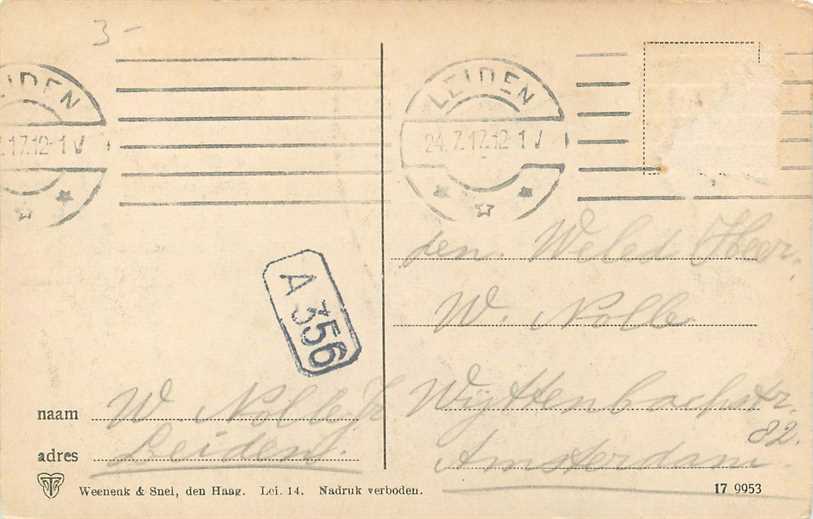 3-
LEIDEN
24.7.17.12-1 V
LEIDEN
.17.12-1 V
A 356
den. Weled Heer,
W. Nolle
Wyttenbachstr.
82.
Amsterdam
naam W. Nolle Jr
adres Leiden.
Weenenk & Snel, den Haag. Lei. 14. Nadruk verboden.
17 9953